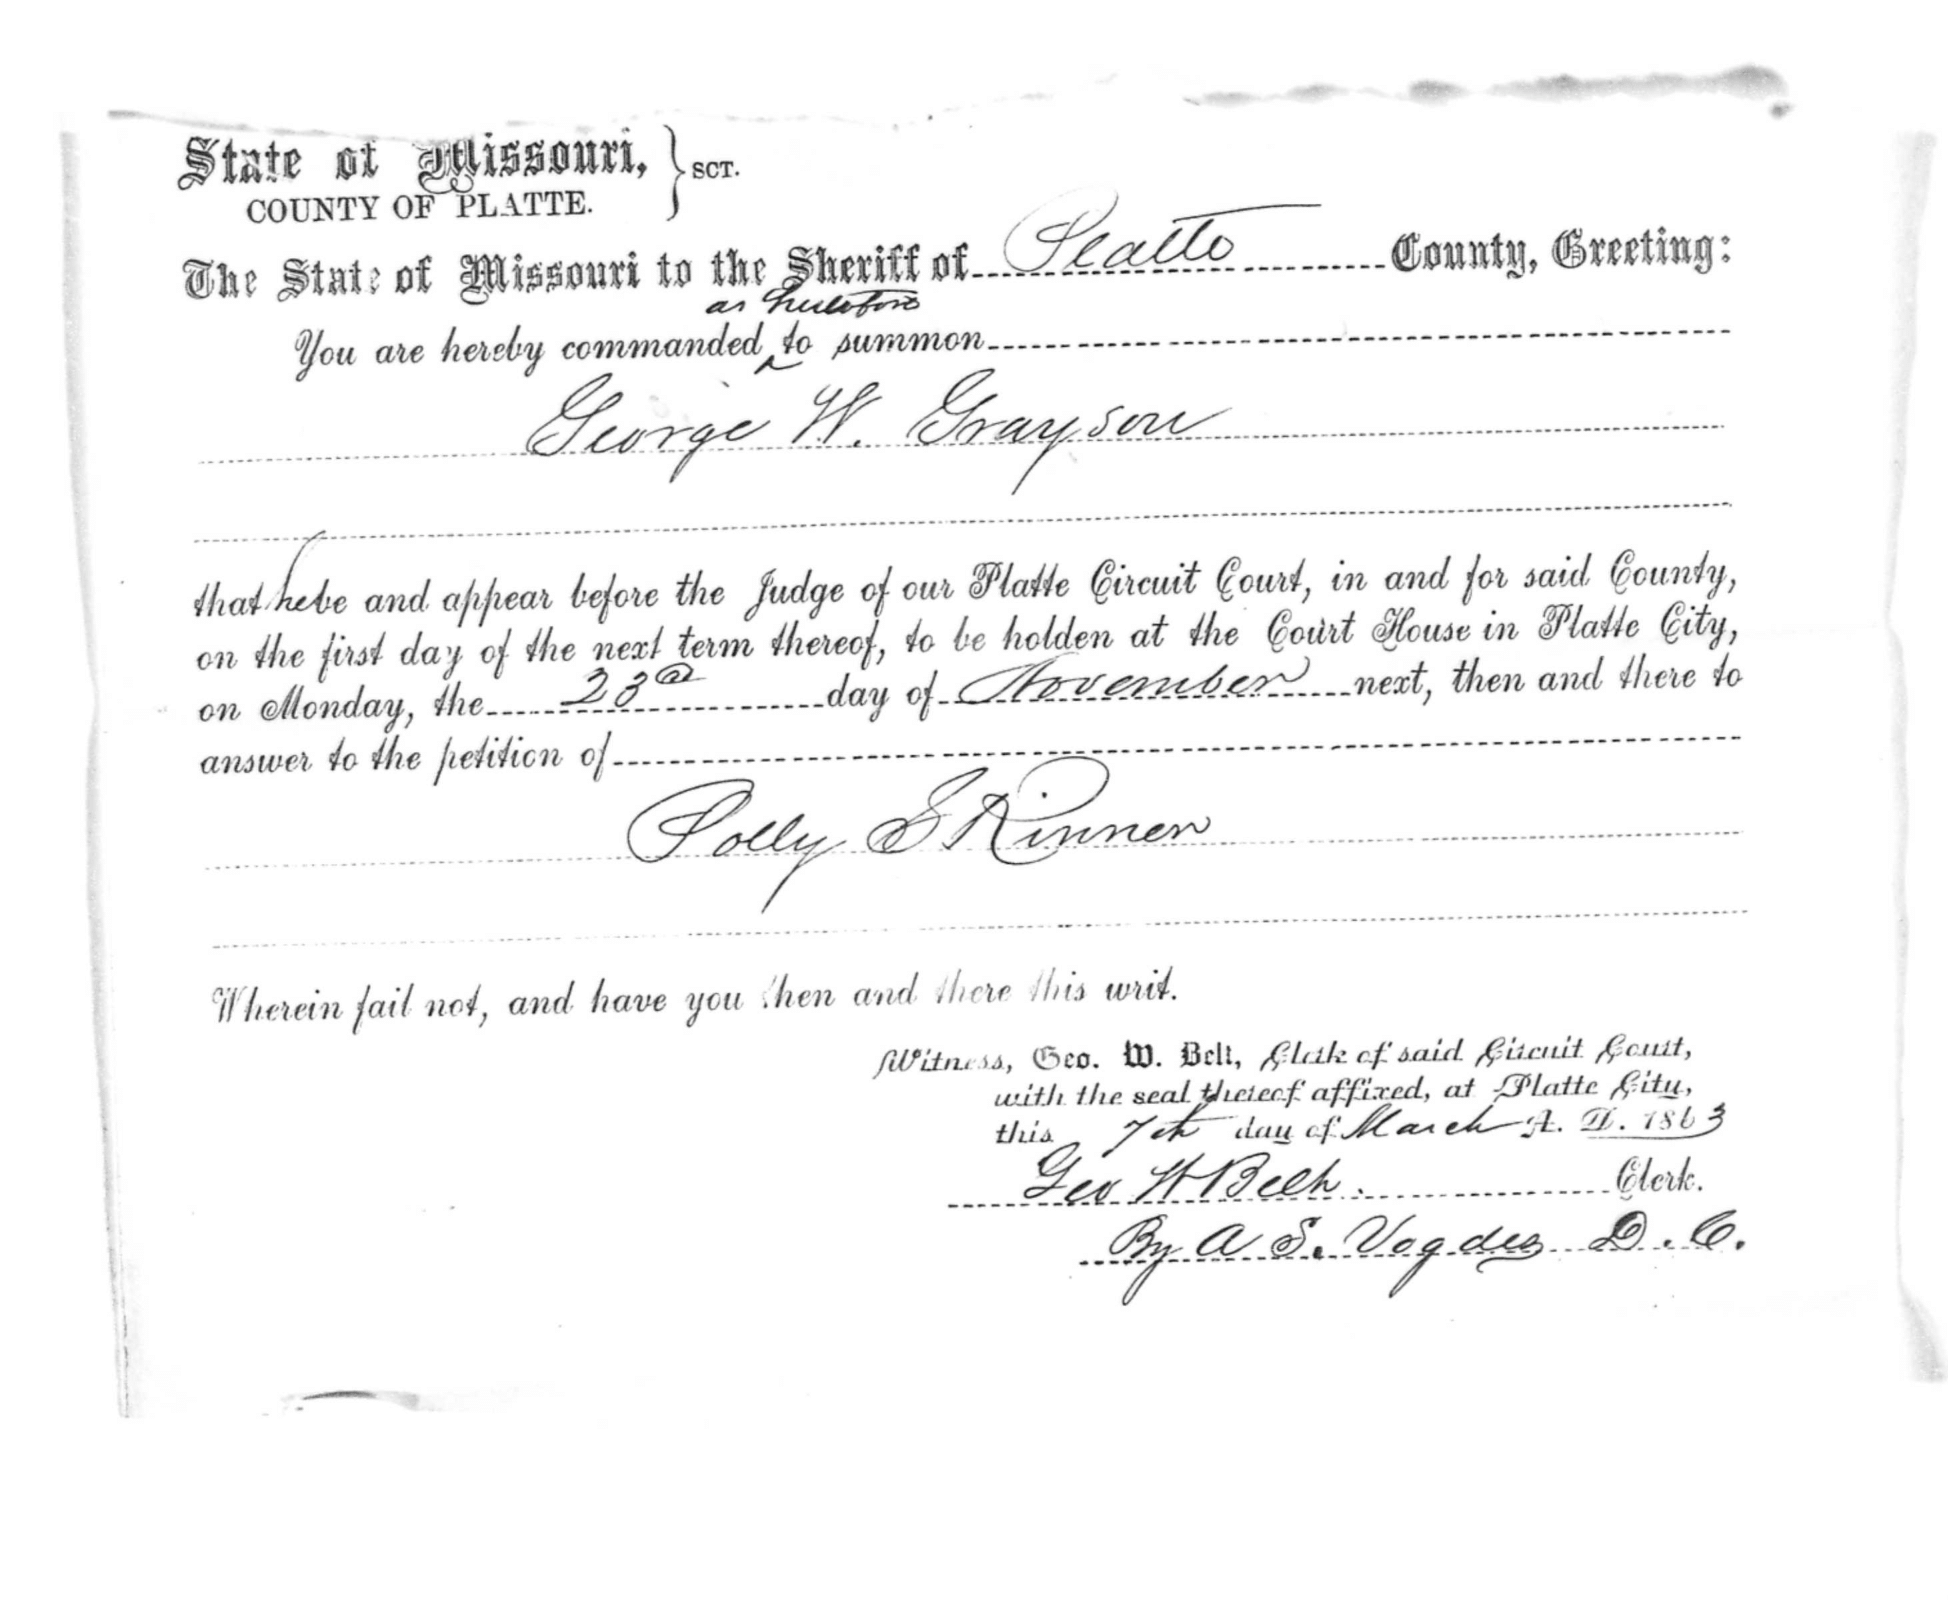 State of Missouri, } SCT.
COUNTY OF PLATTE.
The State of Missouri to the Sheriff of Platte County, Greeting:
as heretofore
You are hereby commanded ^ to summon
George W. Grayson
that he be and appear before the Judge of our Platte Circuit Court, in and for said County,
on the first day of the next term thereof, to be holden at the Court House in Platte City,
on Monday, the 23rd day of November next, then and there to
answer to the petition of
Polly Skinner
Wherein fail not, and have you then and there this writ.
Witness, Geo. W. Belt, Clerk of said Circuit Court,
with the seal thereof affixed, at Platte City,
this 7th day of March A. D. 1863
Geo W Belt. Clerk.
By A S. Vogdes D. C.